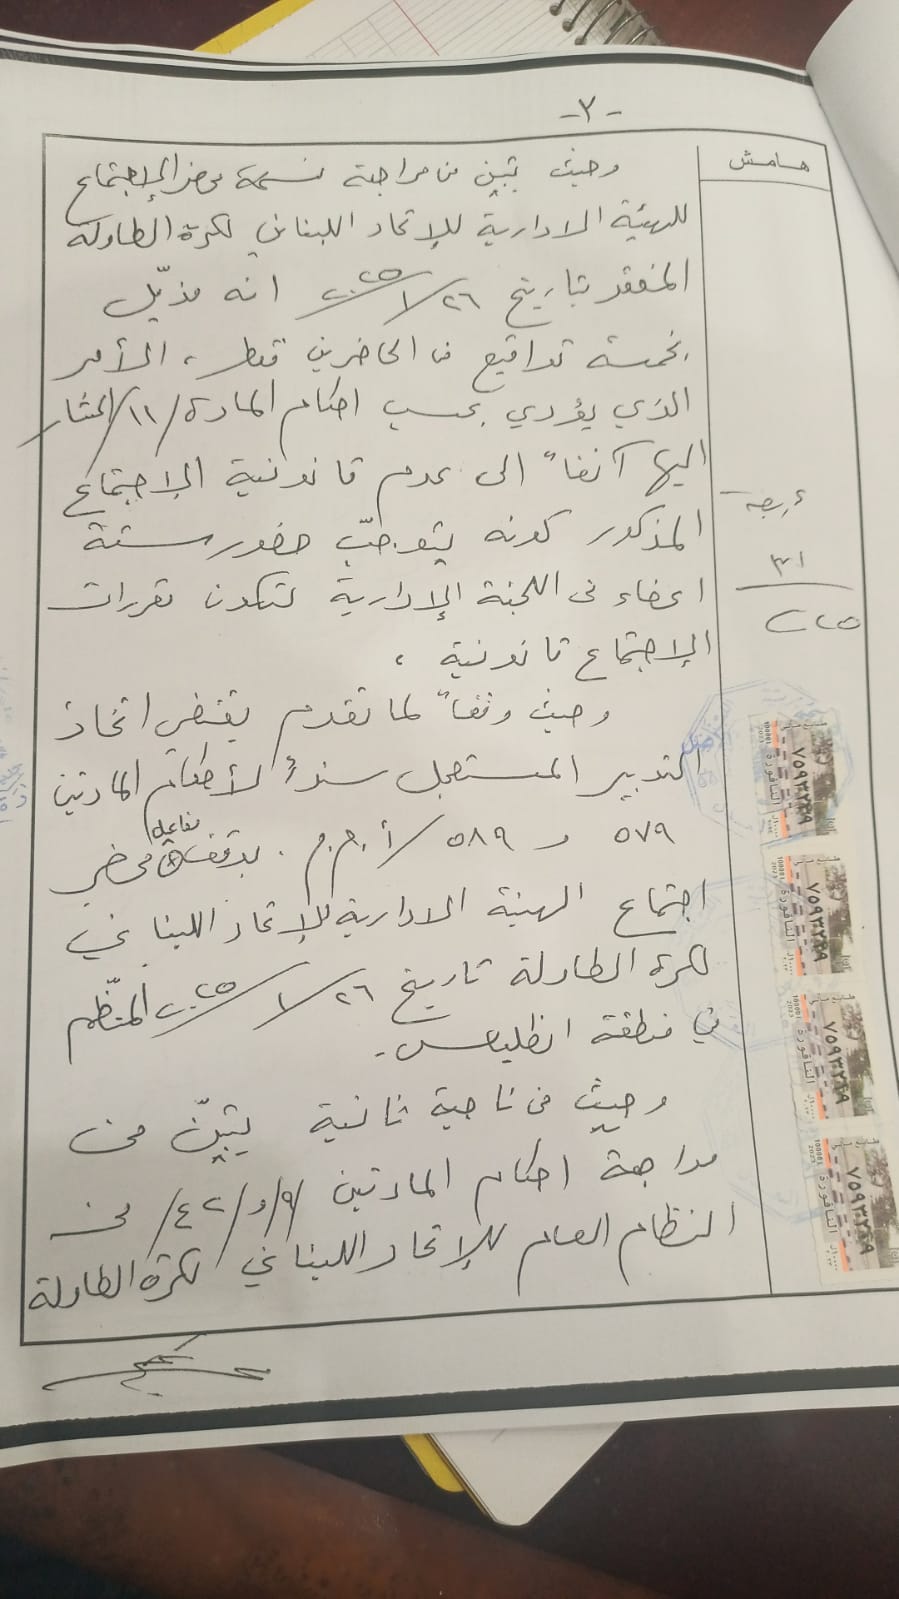 -٢-
هامش
وحيث تبيّن من مراجعة نسخة محضر الإجتماع
للهيئة الادارية للإتحاد اللبناني لكرة الطاولة
المنعقد بتاريخ ٢٦/١/٢٠٢٥ انه مذيّل
بخمسة تواقيع من الحاضرين فقط، الأمر
الذي يؤدي بحسب احكام المادة /١١/ المشار
اليها آنفاً الى عدم قانونية الإجتماع
المذكور كونه يتوجّب حضور ستة
اعضاء من اللجنة الإدارية لتكون مقررات
الإجتماع قانونية،
وحيث وفقاً لما تقدم يقتضي اتخاذ
التدبير المستعجل سنداً لأحكام المادتين
٥٧٩ و ٥٨٩/أ.م.م. بوقف مفاعيل محضر
اجتماع الهيئة الادارية للإتحاد اللبناني
لكرة الطاولة تاريخ ٢٦/١/٢٠٢٥ المنظّم
في منطقة انطلياس.
وحيث من ناحية ثانية يتبيّن من
مراجعة احكام المادتين /٩/ و /٤٢/ من
النظام العام للإتحاد اللبناني لكرة الطاولة
٧٥٩٣٢٤٩
٧٥٩٣٢٤٩
٧٥٩٣٢٤٩
٧٥٩٣٢٤٩